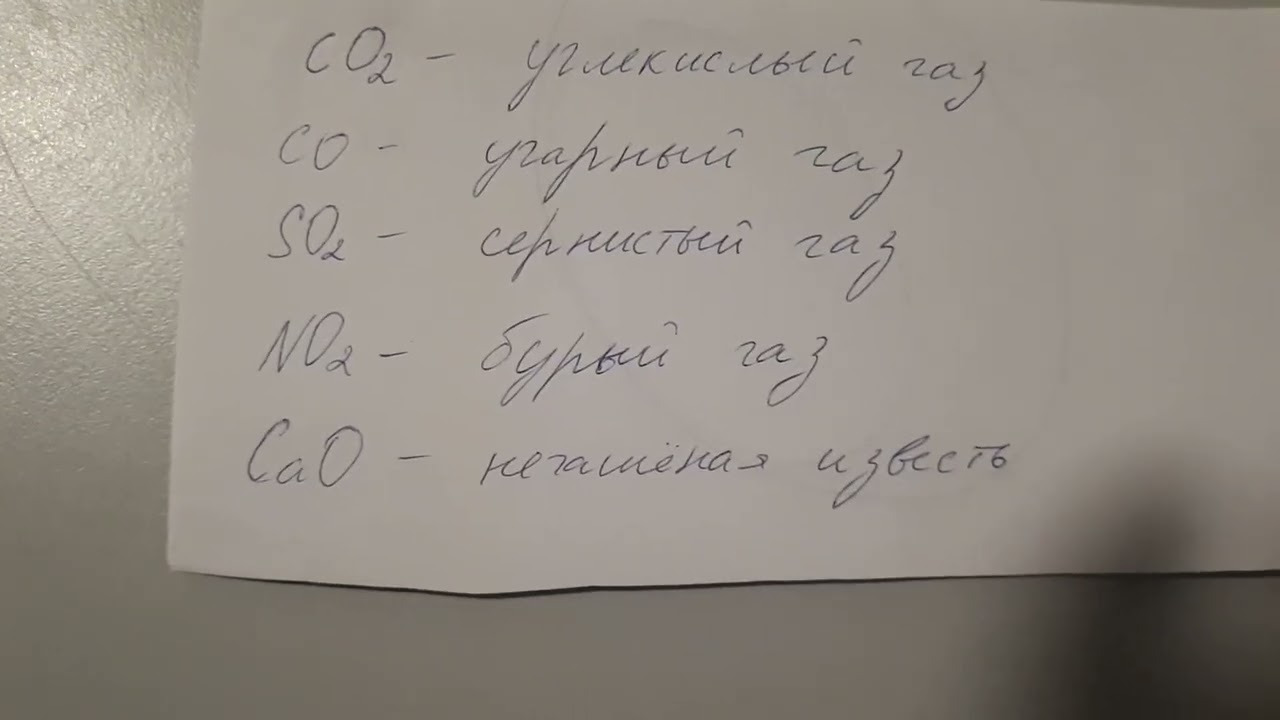 CO₂ - углекислый газ
CO - угарный газ
SO₂ - сернистый газ
NO₂ - бурый газ
CaO - негашёная известь